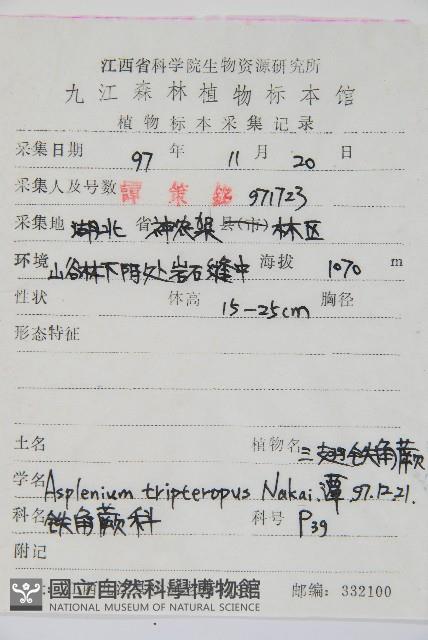 江西省科学院生物资源研究所
九江森林植物标本馆
植物标本采集记录
采集日期 97 年 11 月 20 日
采集人及号数 譚策銘 971723
采集地 湖北 省 神农架 县(市) 林区
环境 山谷林下阴处岩石缝中 海拔 1070 m
性状 体高 15-25cm 胸径
形态特征
土名 植物名 三翅铁角蕨
学名 Asplenium tripteropus Nakai. 譚 97.12.21.
科名 铁角蕨科 科号 P39
附记
邮编: 332100
國立自然科學博物館
NATIONAL MUSEUM OF NATURAL SCIENCE